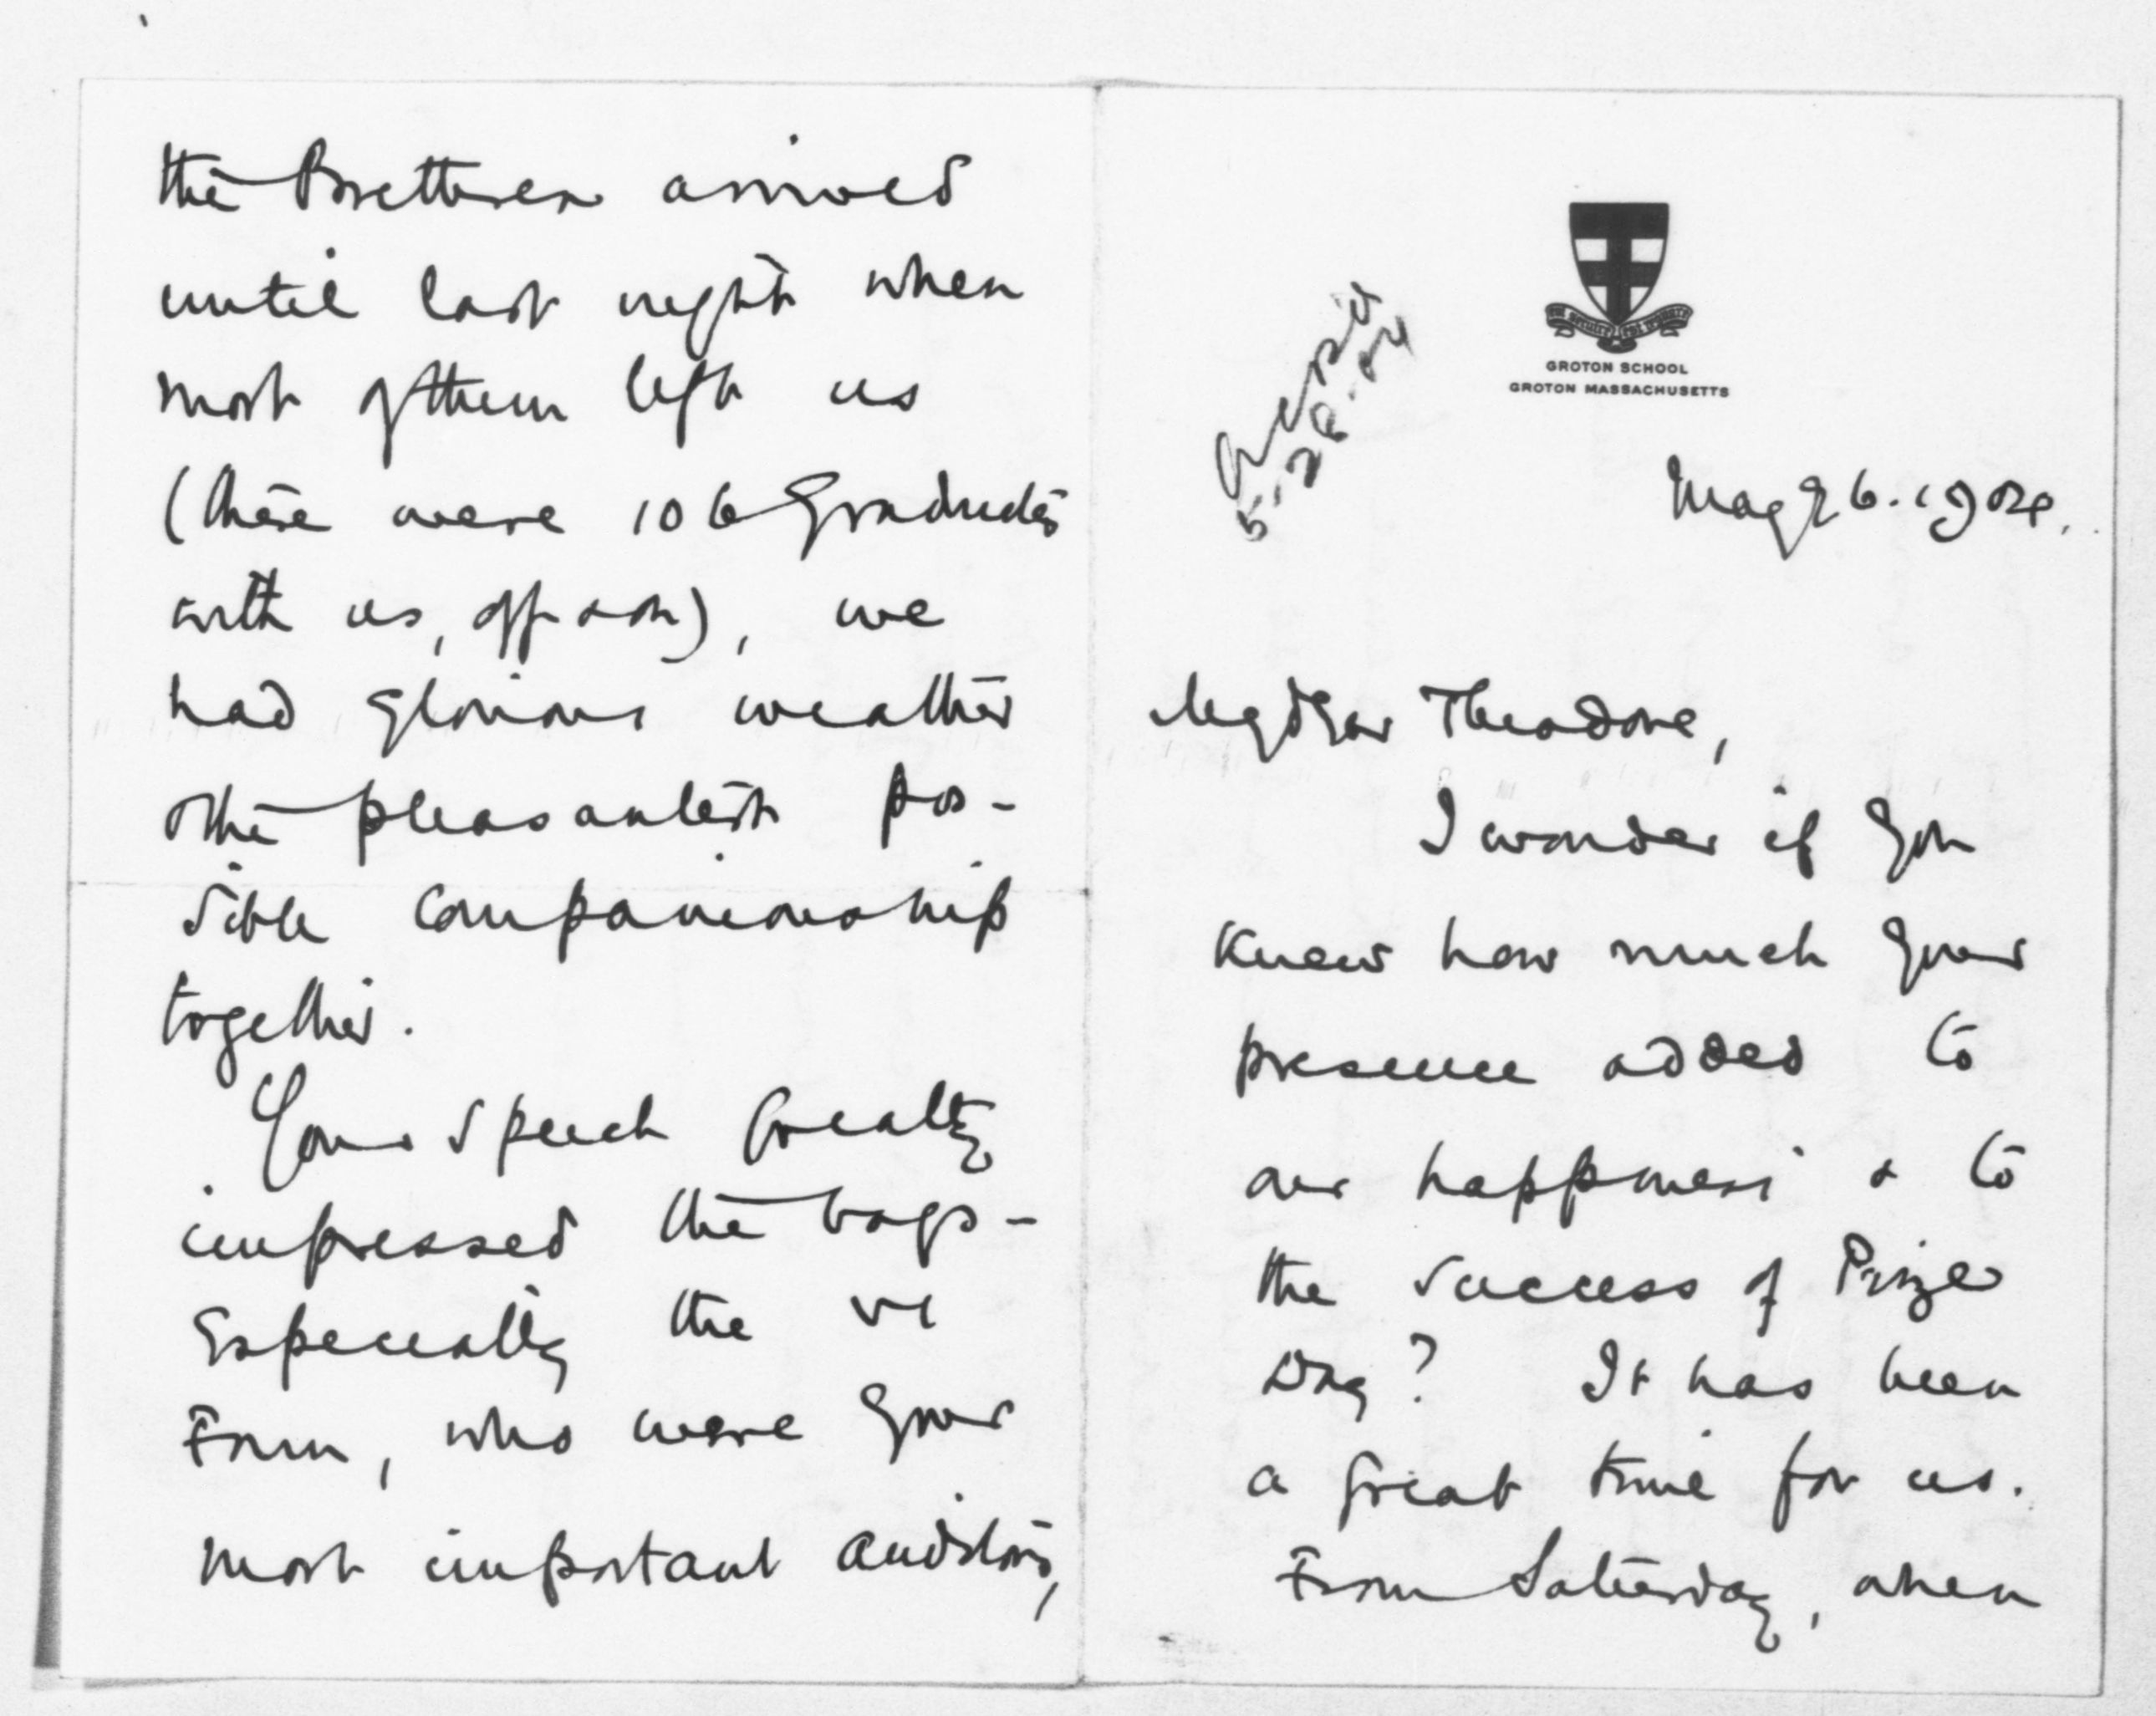 GROTON SCHOOL
GROTON MASSACHUSETTS
Ack'd
5-28-04
May 26. 1904.
My dear Theodore,
I wonder if you
knew how much your
presence added to
our happiness & to
the success of Prize
Day? It has been
a great time for us.
From Saturday, when
the Brethren arrived
until last night when
most of them left us
(there were 106 Graduates
with us, off & on), we
had glorious weather
& the pleasantest pos-
sible companionship
together.
Your speech greatly
impressed the boys -
Especially the VI
Form, who were your
most important auditors,